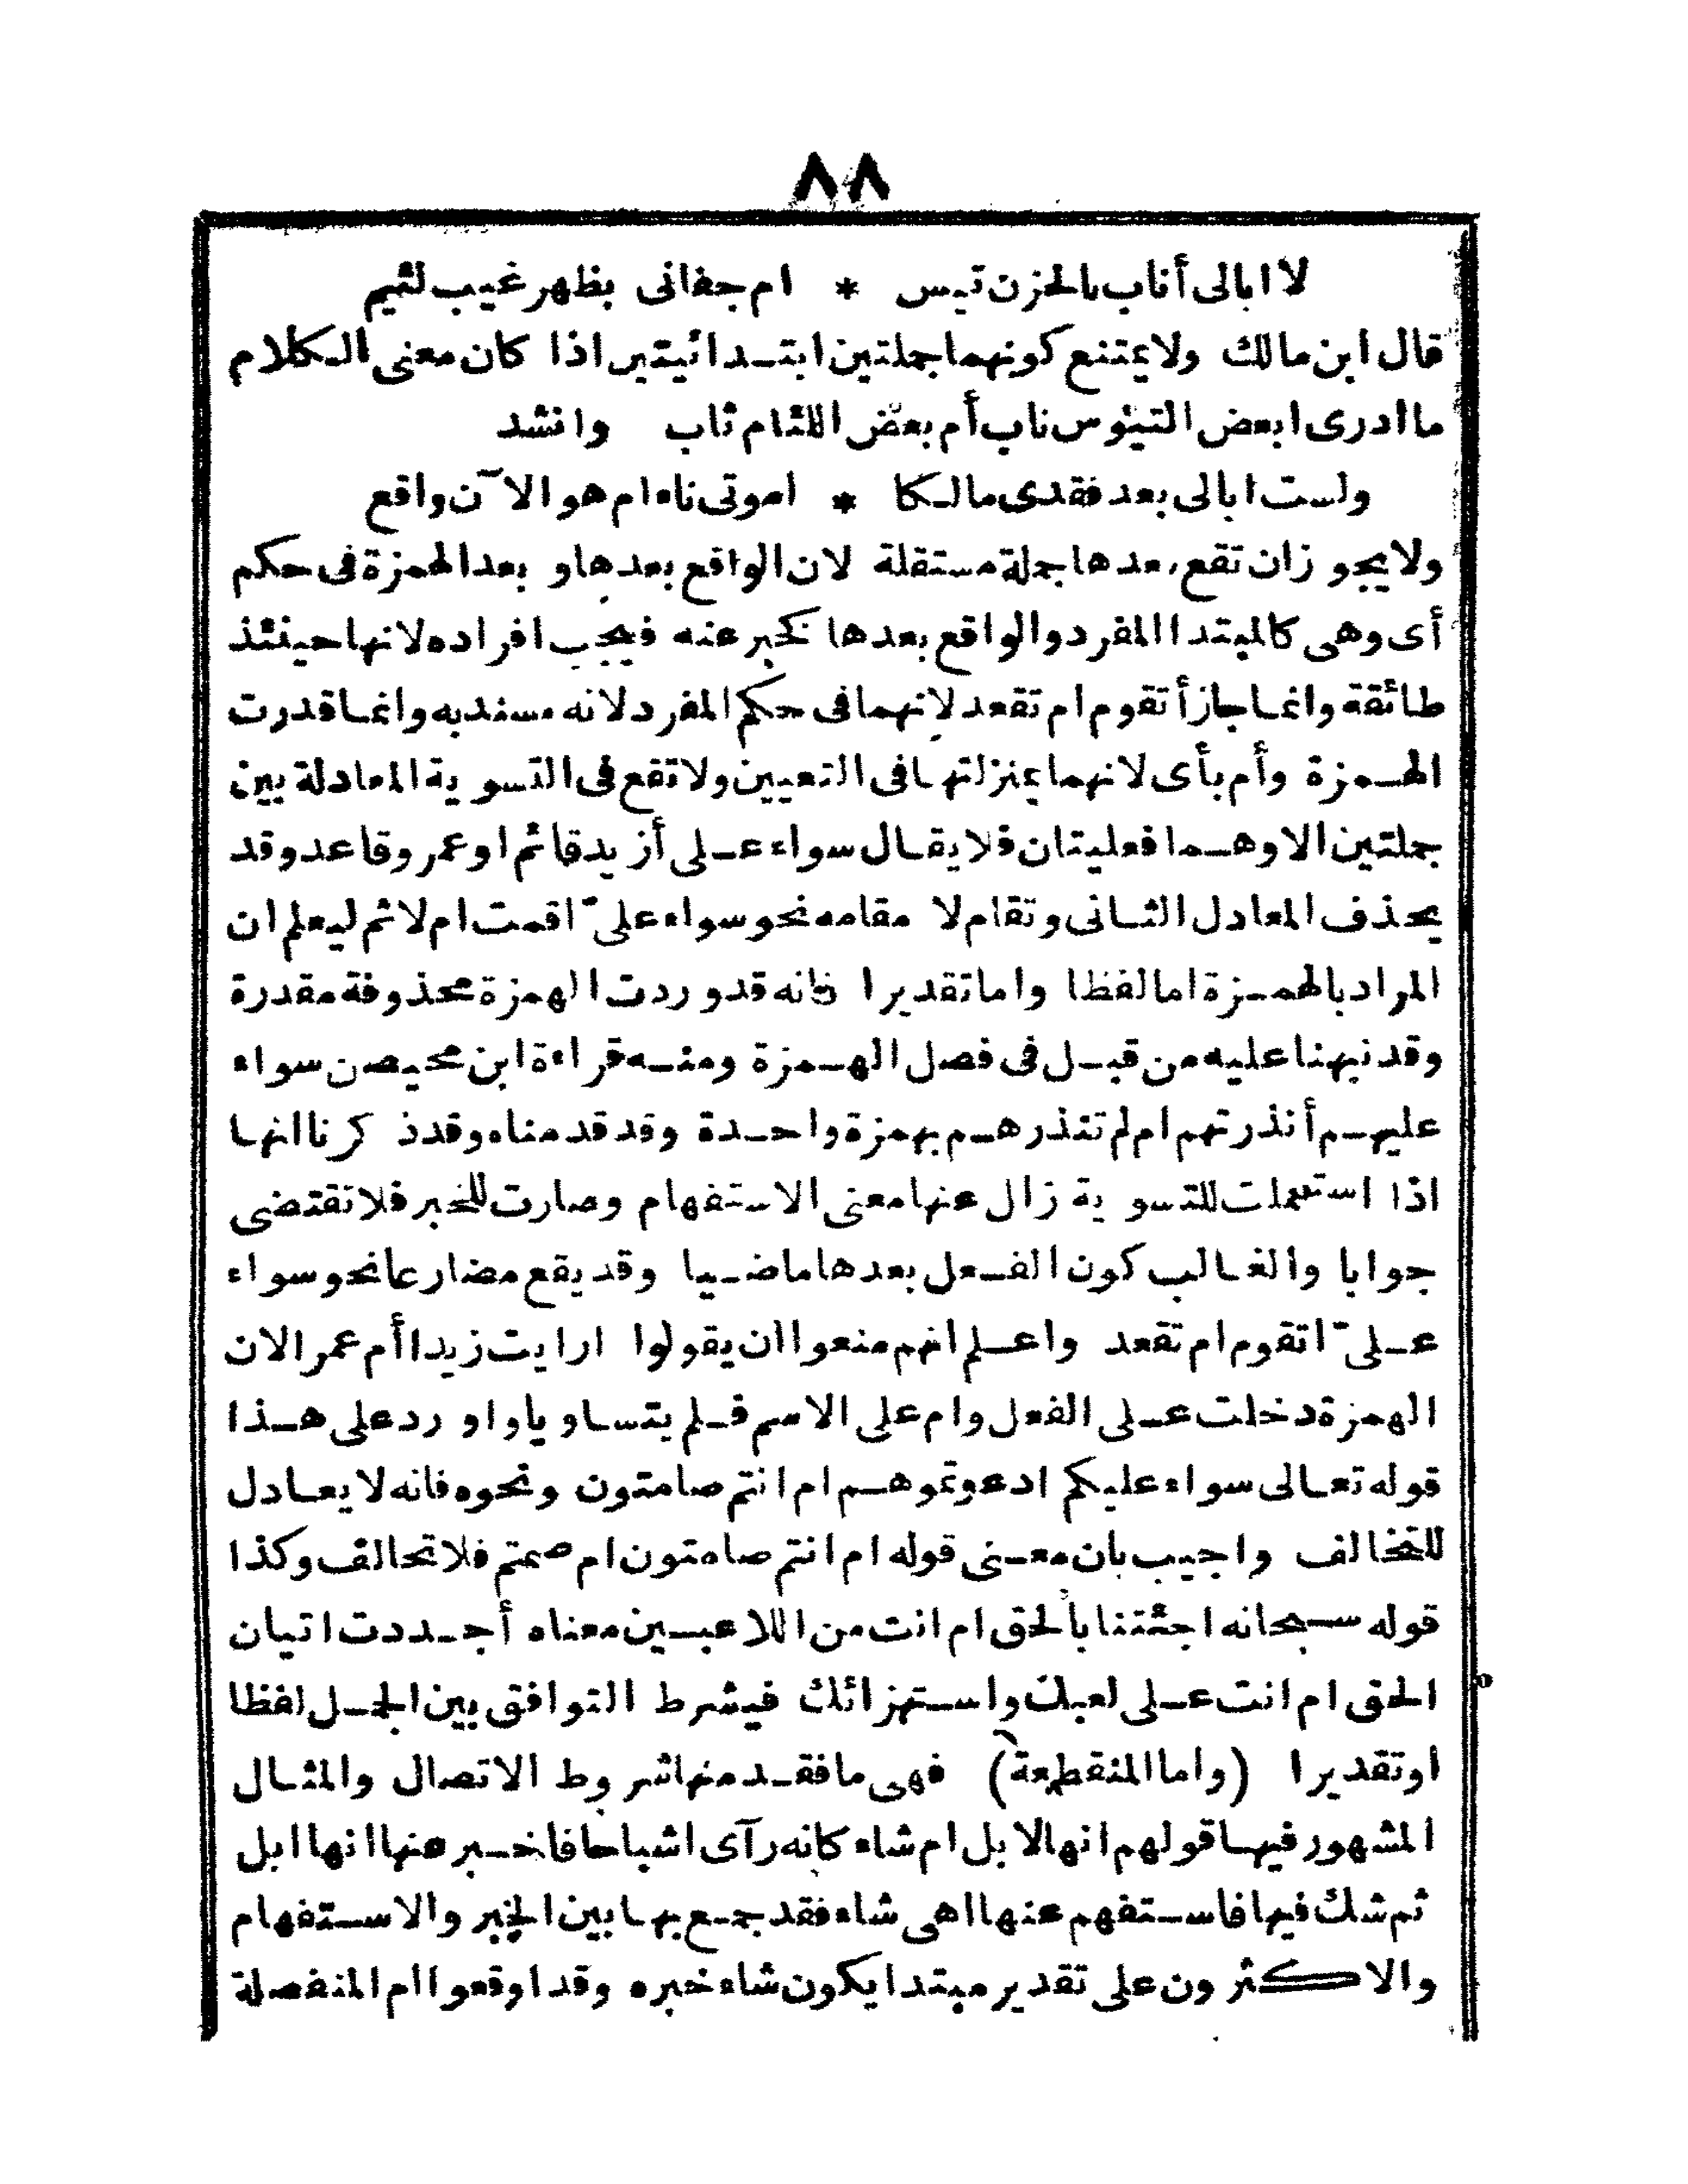 ٨٨
لا ابالى أناب بالحزن تيس * ام جفانى بظهر غيب لئيم
قال ابن مالك ولا يمتنع كونهما جملتين ابتدائيتين اذا كان معنى الكلام
ما ادرى ابعض التيئوس ناب أم بعض اللئام ثاب وانشد
ولست ابالى بعد فقدى مالكا * اموتى ناء ام هو الآن واقع
ولا يجوز ان تقع بعدها جملة مستقلة لان الواقع بعدها و بعد الهمزة فى حكم
أى وهى كالمبتدا المفرد والواقع بعدها كخبر عنه فيجب افراده لانها حينئذ
طائقة وانما جاز أتقوم ام تقعد لانهما فى حكم المفرد لانه مسند به وانما قدرت
الهمزة وأم بأى لانهما بمنزلتها فى التعيين ولا تقع فى التسوية المعادلة بين
جملتين الا وهما فعليتان فلا يقال سواء على أزيد قائم او عمر وقاعد وقد
يحذف المعادل الثانى وتقام لا مقامه نحو سواء علىّ اقمت ام لا ثم ليعلم ان
المراد بالهمزة اما لفظا واما تقديرا فانه قد وردت الهمزة محذوفة مقدرة
وقد نبهنا عليه من قبل فى فصل الهمزة ومنه قراءة ابن محيصن سواء
عليهم أنذرتهم ام لم تنذرهم بهمزة واحدة وقد قدمناه وقد ذكرنا انها
اذا استعملت للتسوية زال عنها معنى الاستفهام وصارت للخبر فلا تقتضى
جوابا والغالب كون الفعل بعدها ماضيا وقد يقع مضارعا نحو سواء
علىّ اتقوم ام تقعد واعلم انهم منعوا ان يقولوا ارايت زيدا أم عمرا لان
الهمزة دخلت على الفعل وام على الاسم فلم يتساويا واورد على هذا
قوله تعالى سواء عليكم ادعوتموهم ام انتم صامتون ونحوه فانه لا يعادل
للتخالف واجيب بان معنى قوله ام انتم صامتون ام صمتم فلا تحالف وكذا
قوله سبحانه اجئتنا بالحق ام انت من اللاعبين معناه أجددت اتيان
الحق ام انت على لعبك واستهزائك فيشرط التوافق بين الجمل لفظا
او تقديرا (واما المنقطعة) فهى ما فقد منها شروط الاتصال والمثال
المشهور فيها قولهم انها لابل ام شاء كانه رآى اشباحا فاخبر عنها انها ابل
ثم شك فيها فاستفهم عنها اهى شاء فقد جمع بها بين الخبر والاستفهام
والاكثرون على تقدير مبتدا يكون شاء خبره وقد اوقعوا ام المنفصلة